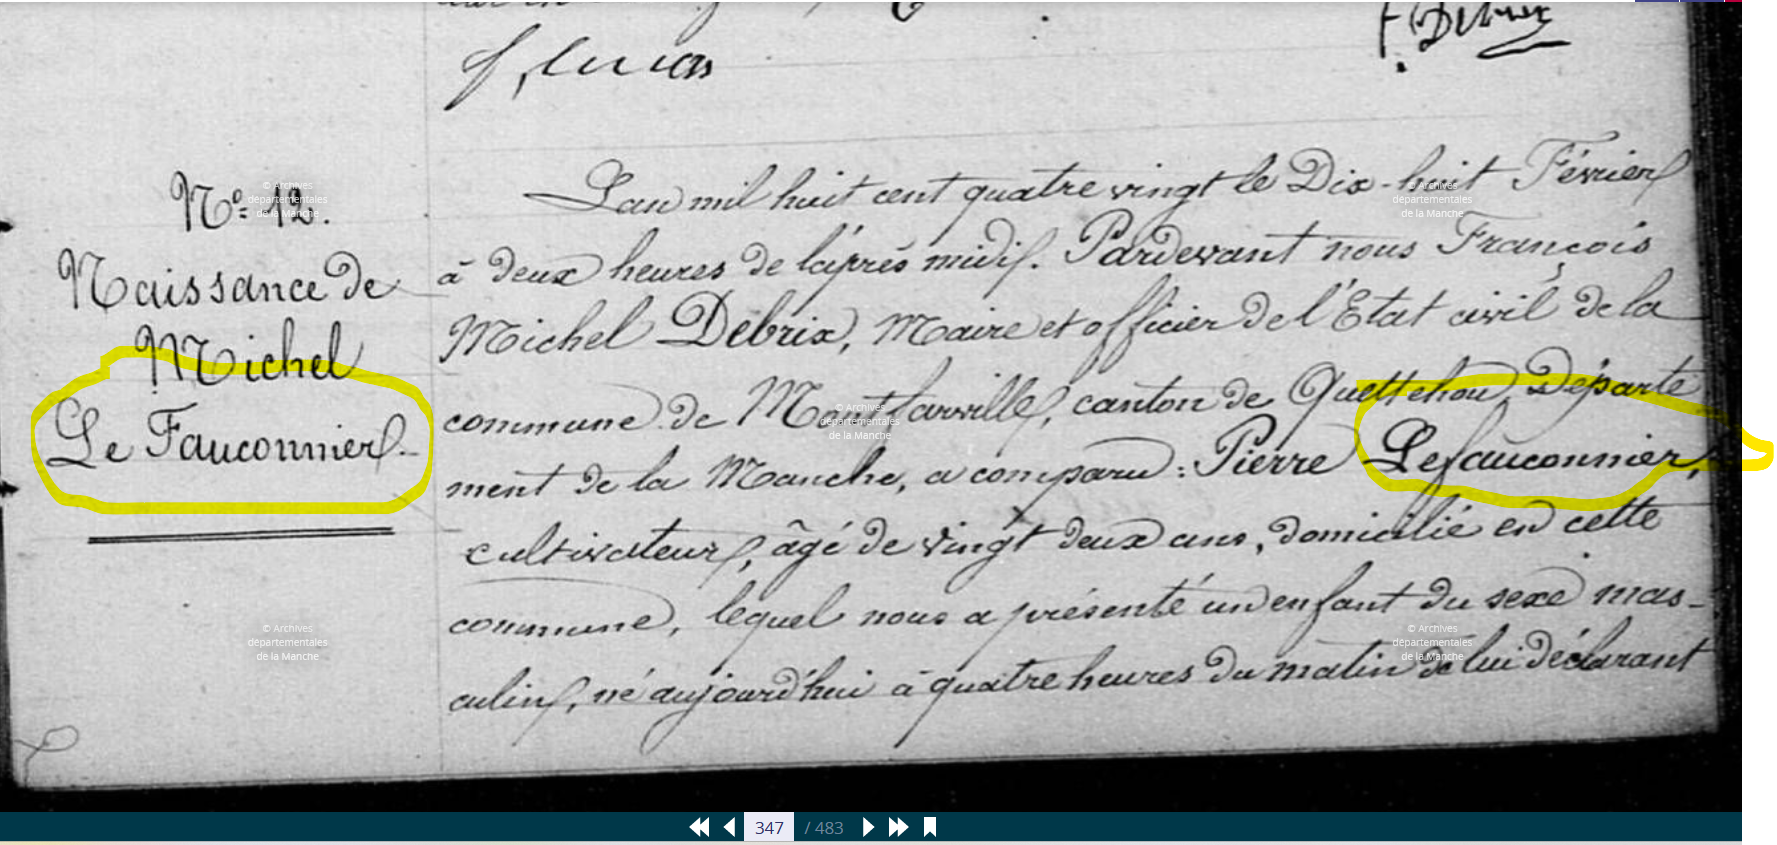 f. Lucas
F. Debrix
Nº 12.
Naissance de
Michel
Le Fauconnier.
L'an mil huit cent quatre vingt le Dix-huit Février
à deux heures de l'après midi. Pardevant nous François
Michel Debrix, Maire et officier de l'Etat civil de la
commune de Montfarville, canton de Quettehou, Départe
ment de la Manche, a comparu : Pierre Lefauconnier,
cultivateur, âgé de vingt deux ans, domicilié en cette
commune, lequel nous a présenté un enfant du sexe mas-
culin, né aujourd'hui à quatre heures du matin de lui déclarant
© Archives
départementales
de la Manche
© Archives
départementales
de la Manche
© Archives
départementales
de la Manche
© Archives
départementales
de la Manche
© Archives
départementales
de la Manche
347 / 483